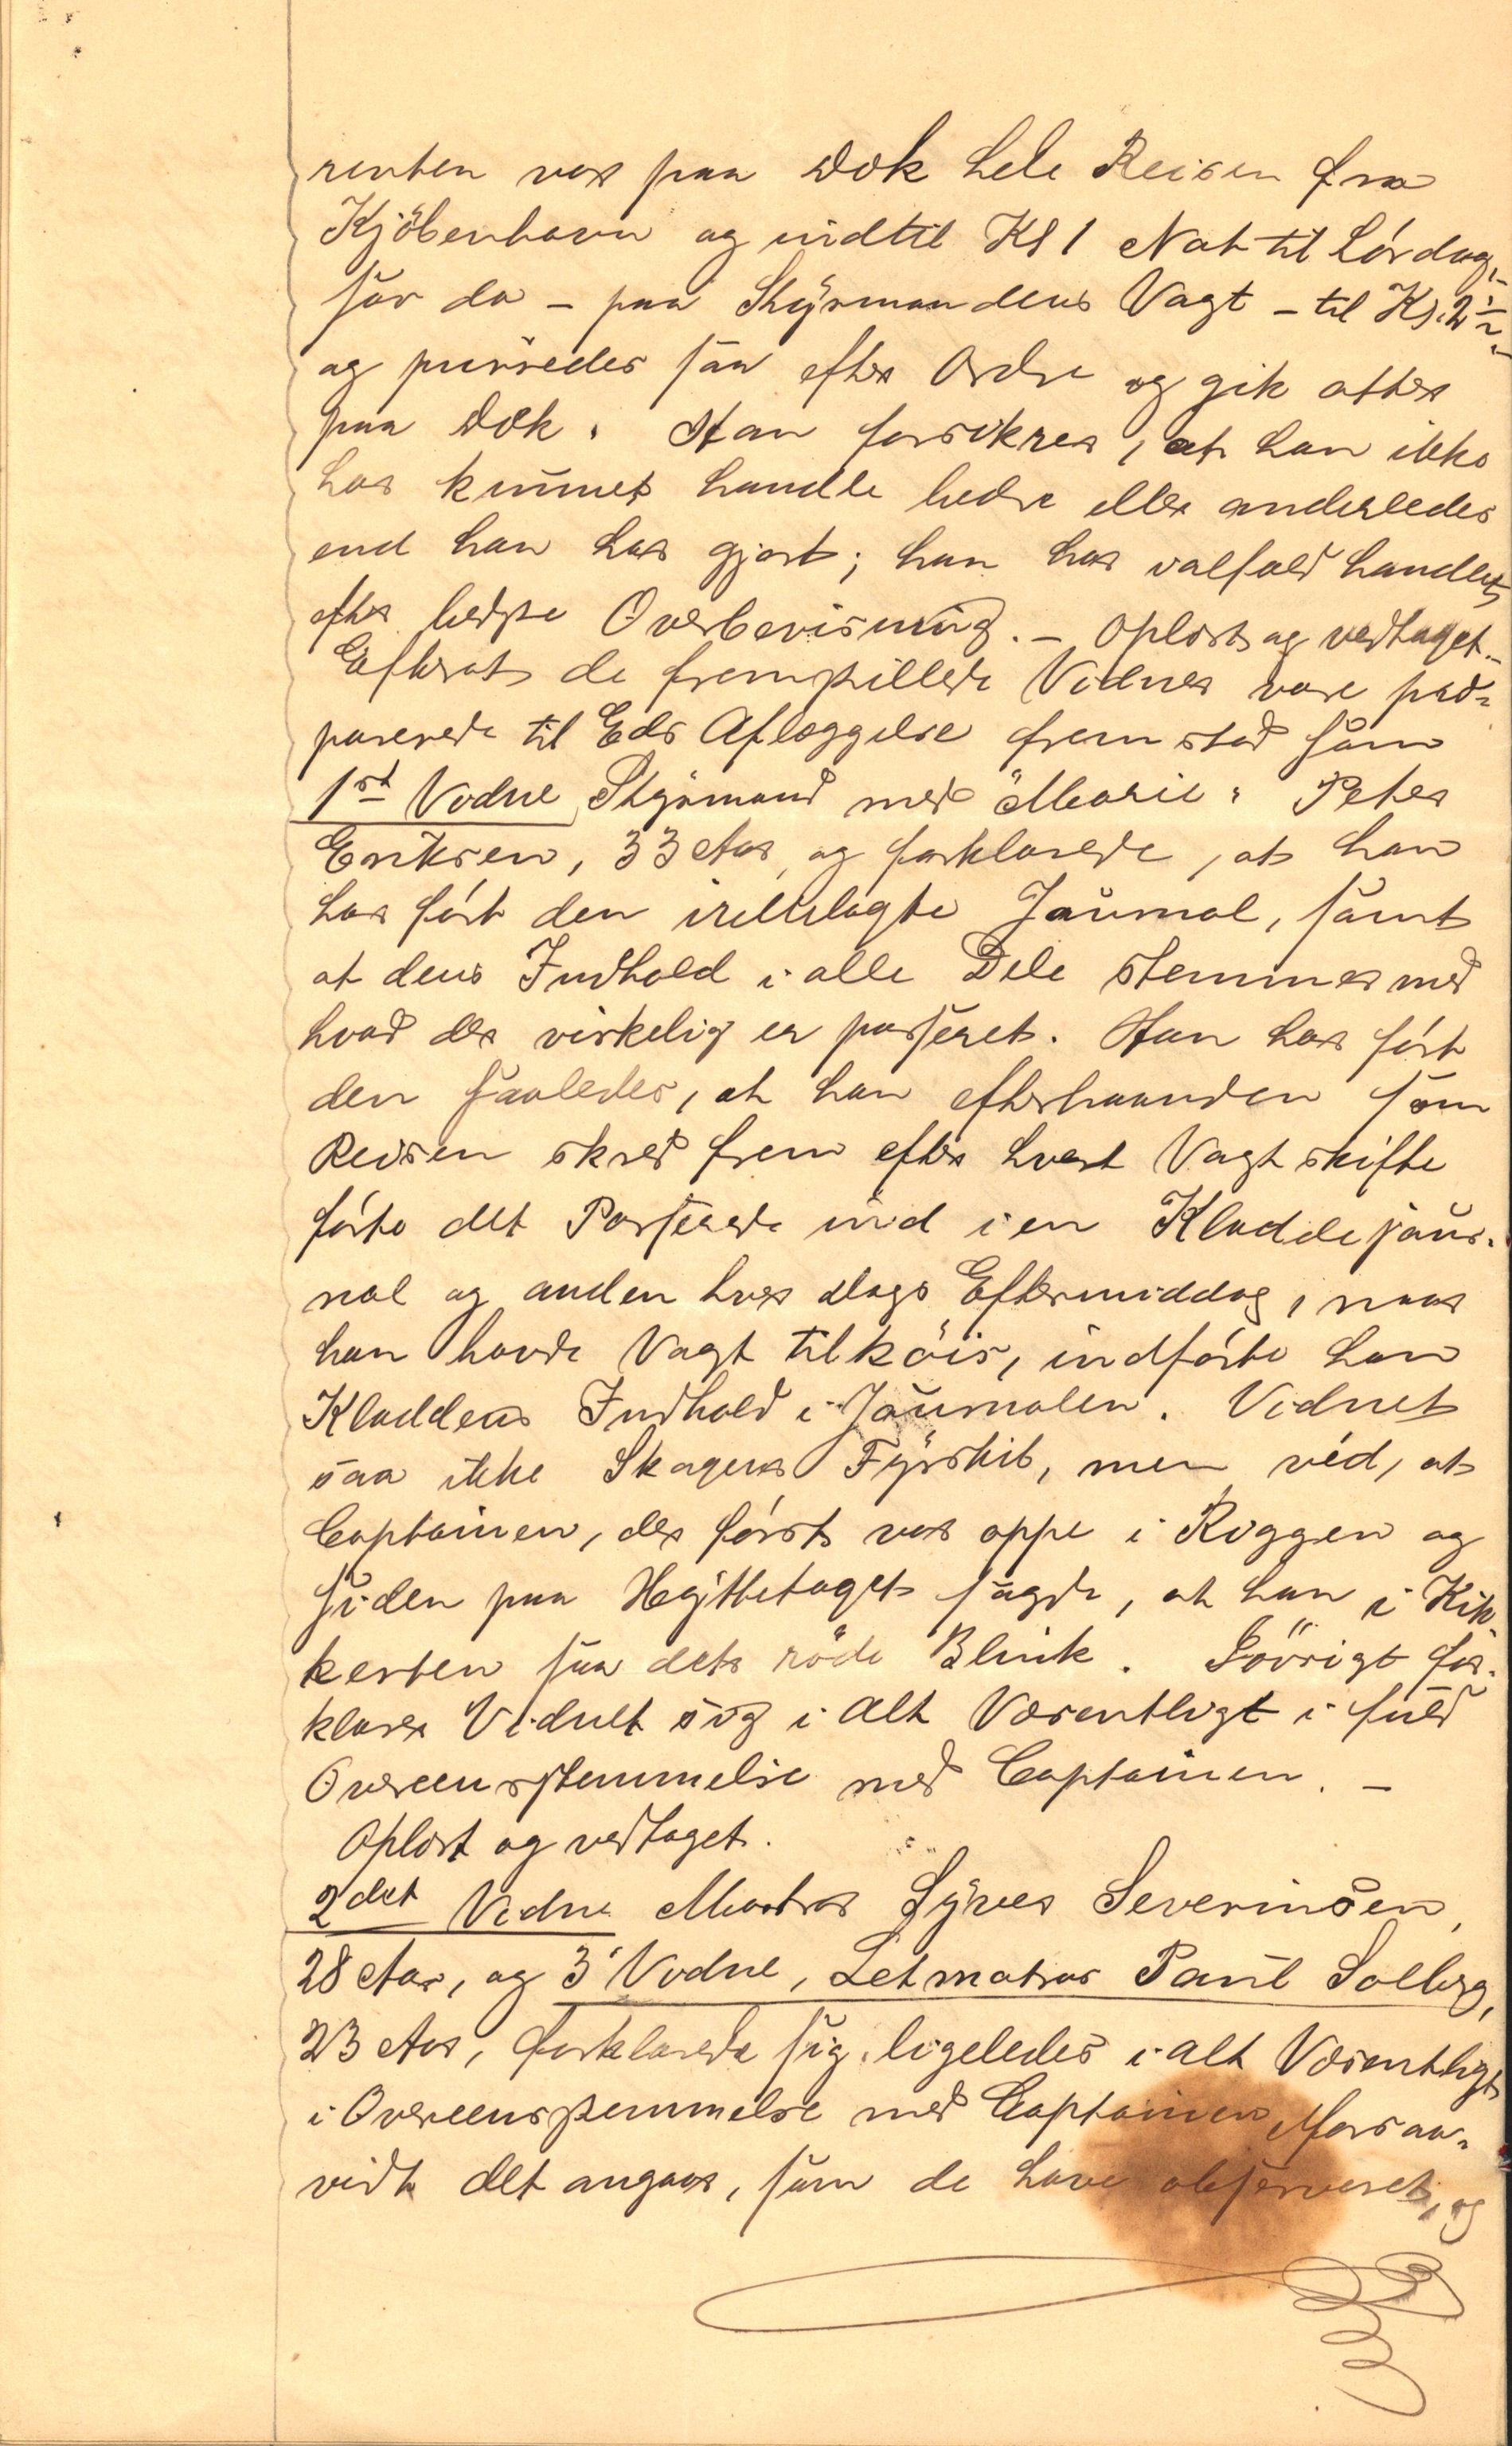 renten var paa Dæk hele Reisen fra
Kjöbenhavn og indtil Kl 1 Nat til Lördag,
sov da – paa Styrmandens Vagt – til Kl. 2½
og purredes saa efter Ordre og gik atter
paa Dæk. Han forsikrer, at han ikke
har kunnet handle bedre eller anderledes
end han har gjort; han har ialfald handlet
efter bedste Overbevisning. – Oplæst og vedtaget. –
Efterat de fremstillede Vidner vare præ-
parerede til Eds Aflæggelse fremstod som
1st Vidne Styrmand med "Marie" Peter
Eriksen, 33 Aar, og forklarede, at han
har ført den irettelagte Journal, samt
at dens Indhold i alle Dele stemmer med
hvad der virkelig er passeret. Han har ført
den saaledes, at han efterhaanden som
Reisen skred frem efter hvert Vagtskifte
førte det Passerede ind i en Kladdejour-
nal og anden hver Dags Eftermiddag, naar
han havde Vagt tilköis, indførte han
Kladdens Indhold i Journalen. Vidnet
saa ikke Skagens Fyrskib, men véd, at
Captainen, der først var oppe i Riggen og
siden paa Hyttetaget sagde, at han i Kik-
kerten saa dets röde Blink. Iövrigt for-
klarer Vidnet sig i Alt Væsentligt i fuld
Overeensstemmelse med Captainen. –
Oplæst og vedtaget.
2det Vidne Matros Syver Severinsen,
28 Aar, og 3' Vidne, Letmatros Paul Solberg,
23 Aar, forklarede sig ligeledes i Alt Væsentligt
i Overeensstemmelse med Captainen forsaa-
vidt det angaar, som de have observeret, og